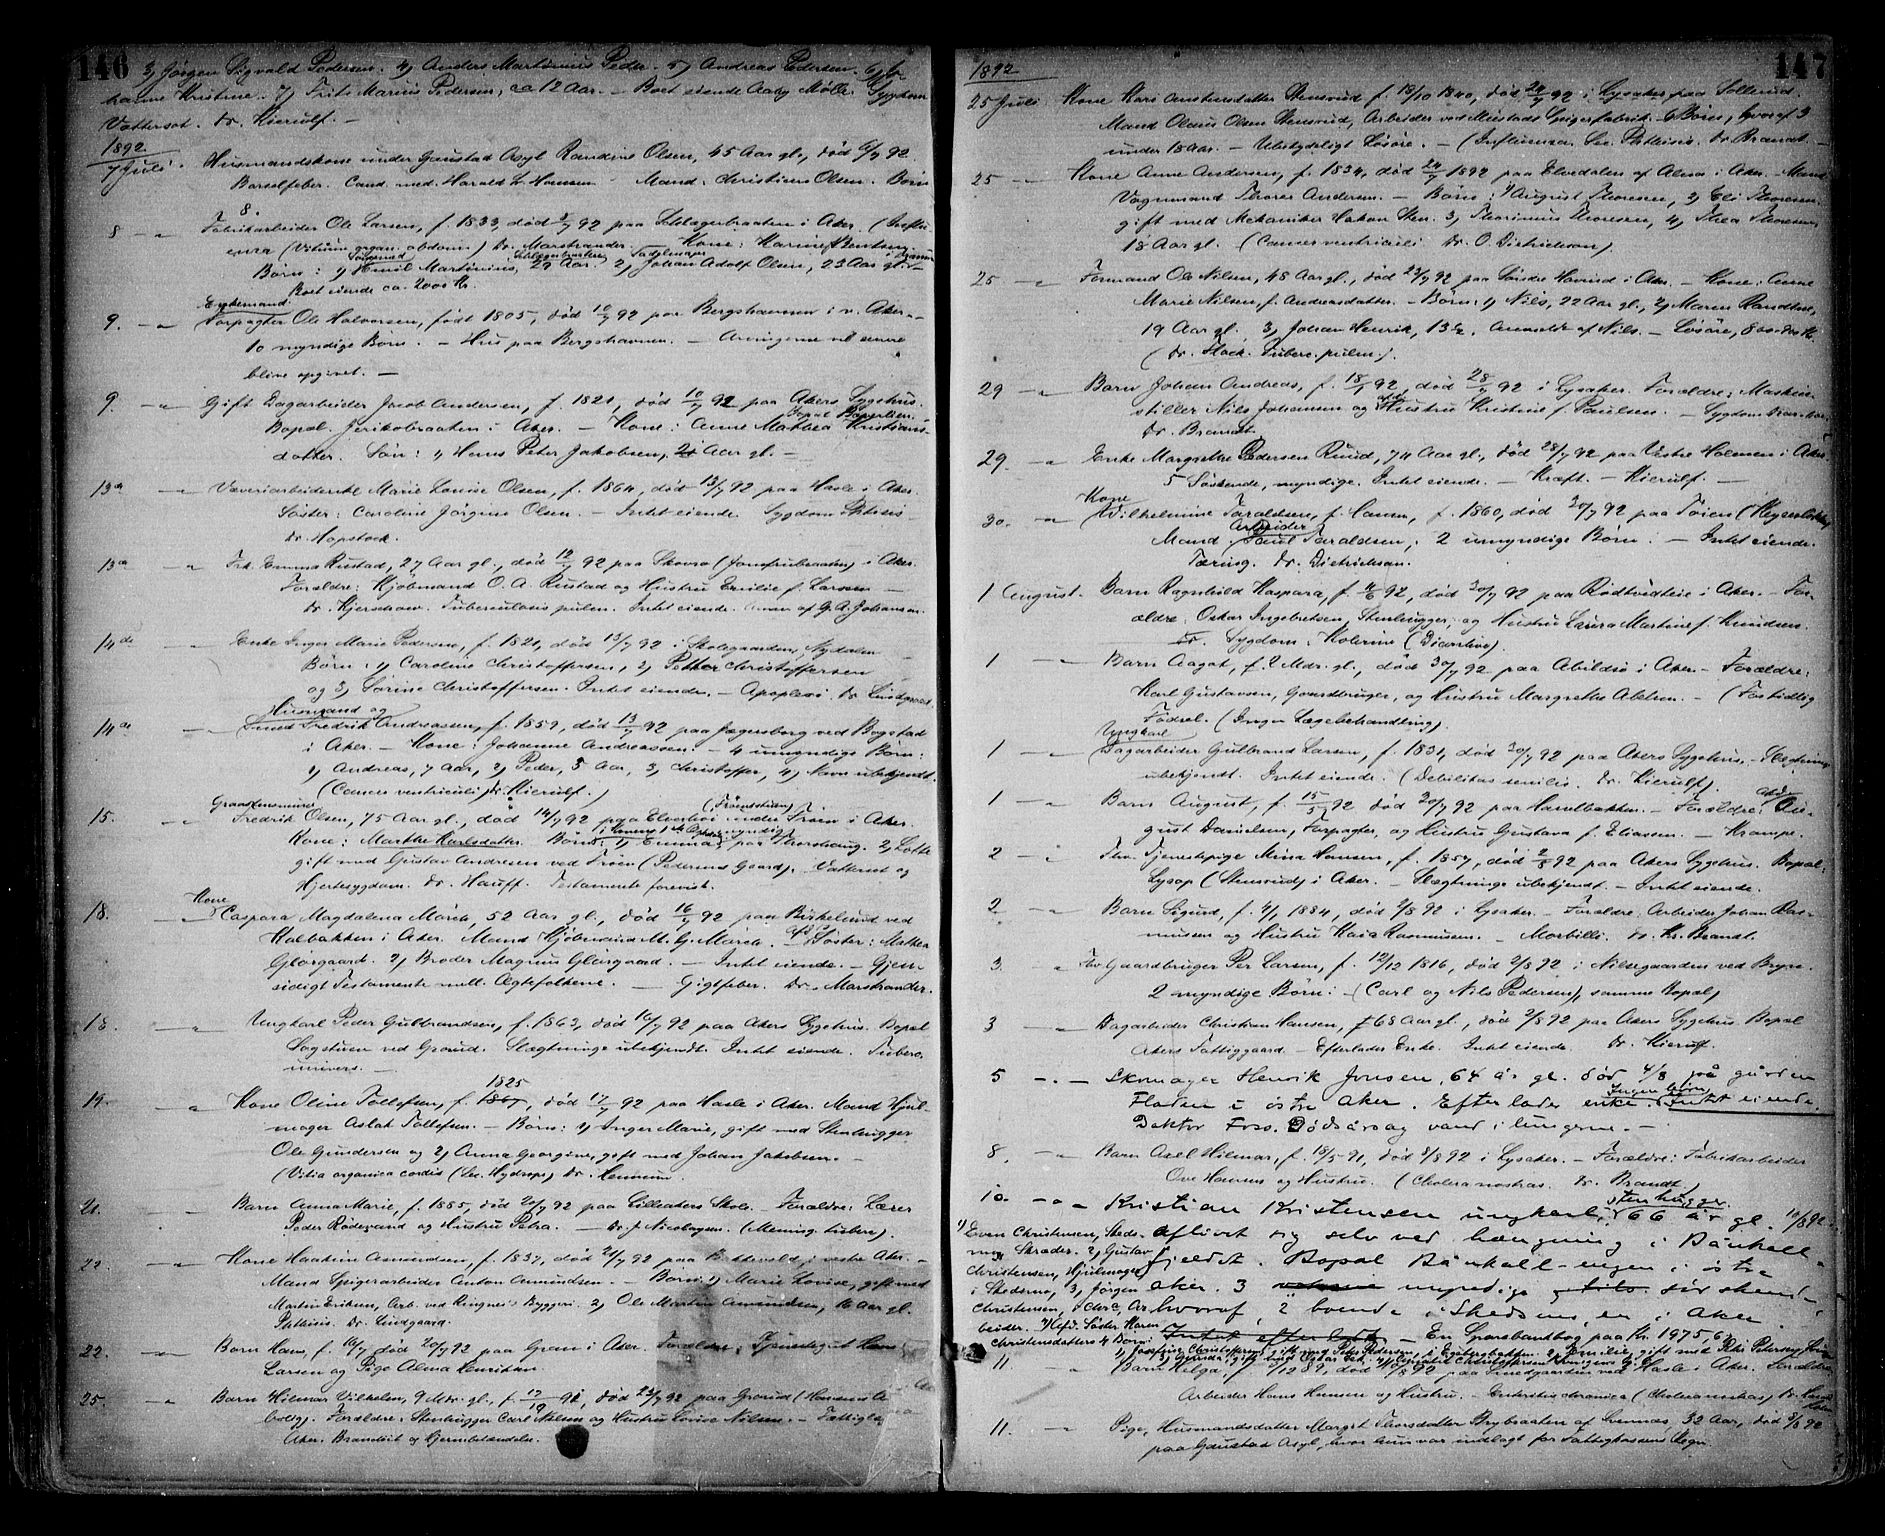 146
3, Jørgen Sigvald Pedersen. 4, Anders Martinius Peder. 5, Andreas Pedersen. 6, Jo-
hanne Kristine. 7, Frits Marius Pedersen, ca 12 Aar. – Boet eiende Sygdom
Vattersot. Dr. Kierulf. –
1892
7 Juli. Husmandskone under Gaustad Asyl Randine Olsen, 45 Aar gl., død 6/7 92
Barselfeber. Cand. med. Harald Hansen Mand: Christian Olsen. Børn
8.
8 – „ Fabrikarbeider Ole Larsen, f. 1833, død 3/7 92 paa Schlagerbraaten i Aker. (Influ-
enza (Vitium organ. abdom.) Dr. Marstrander. – Kone: Karine Berntsen.
Børn: 1, Emil Martinius, 29 Aar. 2, Johan Adolf Olsen, 23 Aar gl.
Boet eiende ca. 2000 Kr.
Enkemand.
9. – „ Forpagter Ole Halvorsen, født 1805, død 10/7 92 paa Bergshavnen i v. Aker. –
10 myndige Børn. – Hus paa Bergshavnen. – Arvingerne vil senere
blive opgivet. –
9. – „ Gift Dagarbeider Jacob Andersen, f. 1821, død 10/7 92 paa Akers Sygehus.
Bopæl Jerikobraaten i Aker. – Kone: Anne Mathea Kristians-
datter. Søn: 1, Hans Peter Jakobsen, Aar gl. –
13de – „ Væveriarbeiderske Marie Lovise Olsen, f. 1864, død 13/7 92 paa Hasle i Aker.
Søster: Caroline Jørgine Olsen. – Intet eiende. Sygdom Phtisis
Dr Mopstock.
13de – „ Frk. Emma Rustad, 27 Aar gl., død 12/7 92 paa Skovro (Jomfrubraaten) i Aker.
Forældre: Kjøbmand O. A. Rustad og Hustru Emilie f. Larsen –
Dr. Kjerschow. Tuberculosis pulm. Intet eiende. Anm. af G. A. Johansen.
14de – Enke Inger Marie Pedersen, f. 1821, død 13/7 92 i Skolegaarden, Nydalen
Børn: 1, Caroline Christoffersen, 2, Petter Christoffersen
og 3, Sørine Christoffersen. Intet eiende. – Apoplexi. Dr. Lindgaard.
Husmand og
14de – Smed Fredrik Andreassen, f. 1859, død 13/7 92 paa Jægersborg ved Bogstad
i Aker. – Kone: Johanne Andreassen. – 4 umyndige Børn:
1, Andreas, 7 Aar, 2, Peder, 5 Aar, 3, Christoffer, 4, Navn ubekjendt.
(Cancer ventriculi) Dr. Kierulf.
15. – „ Fredrik Olsen, 75 Aar gl., død 14/7 92 paa under Frøen i Aker.
Kone: Marthe Karlsdatter. Børn: 1, Emma paa Thorshaug. 2, Lotte
gift med Gustav Andresen ved Frøen (Pedersens Gaard). Vattersot og
Hjertesygdom. Dr. Hauff. Testamente forevist.
Kone
18. – „ Caspara Magdalena March, 52 Aar gl., død 16/7 92 paa Birkelund ved
Kalbakken i Aker. Mand Kjøbmand M. G. March. – Søster: Mathea
Glorgaard. 2, Broder Magnus Glorgaard. – Intet eiende. – Gjen-
sidigt Testamente mell. Ægtefolkene. – Gigtfeber. Dr. Marstrander.
18. – „ Ungkarl Peder Gulbrandsen, f. 1863, død 16/7 92 paa Akers Sygehus. Bopæl
Sagstuen ved Grorud. Slægtninge ubekjendt. Intet eiende. Tuberc.
univers. –
1825
19. – „ Kone Oline Tollefsen, f. 1867, død 17/7 92 paa Hasle i Aker. Mand Hjul-
mager Aslak Tollefsen. – Børn: 1, Inger Marie, gift med Stenhugger
Ole Gundersen og 2, Anna Georgine, gift med Johan Jakobsen. –
(Vitia organica cordis (Sec. Hydrops) Dr. Hemmin
21. – Barn Anna Marie, f. 1885, død 20/7 92 paa Lilleakers Skole. Forældre: Lærer
Peder Rødevand og Hustru Petra. – Dr. J. Nicolaysen. (Mening. tuberc.)
22. – „ Kone Haakine Asmundsen, f. 1837, død 21/7 92 paa i vestre Aker. –
Mand Spigerarbeider Anton Asmundsen. – Børn: 1, Marie Lovise, gift med
Martin Eriksen, Arb. ved Ringnes's Byggeri. 2, Ole Martin Asmundsen, 16 Aar gl.
Phthisis. Dr. Lindgaard.
22. – Barn Hans, f. 16/7, død 20/7 92 paa Gran i Aker. Forældre: Tjenestegut Hans
Larsen og Pige Alma Henriksen.
25. – „ Barn Hilmar Vilhelm, 9 Mdr. gl., f. 17/10 91, død 23/7 92 paa Grorud (
bolig). Forældre: Stenhugger Carl Nilsen og Hustru Lovise Nilsen. – Fattigl.
Aker. og Hjernebetændelse.
1892
147
25 Juli Kone Kari Stensrud f. 13/10 1840, død 24/7 92 i Lysaker paa Sollerud.
Mand Olaus Olsen Stensrud, Arbeider ved Mustads Spigerfabrik. 6 Børn, hvoraf 3
under 18 Aar. – Ubetydeligt Løsøre. – (Influenza. Sec. Phthisis. Dr. Brandt. –
25 – „ Kone Anne Andersen, f. 1834, død 24/7 1892 paa Elvedalen af Alna i Aker. – Mand
Vognmand Thorer Andersen. – Børn: 1, August Thoresen, 2, Eli Thoresen,
gift med Mekaniker Hakon Sten. 3, Thorinius Thoresen, 4, Thea Thoresen,
18 Aar gl. (Cancer ventriculi Dr. O. Dietrichson)
25 – „ Formand Ole Nilsen, 48 Aar gl., død 23/7 92 paa Søndre Hovind i Aker. – Kone: Anne
Marie Nilsen, f. Andreasdatter. – Børn: 1, Nils, 22 Aar gl., 2, Maren Randine,
19 Aar gl., 3, Johan Henrik, 13 1/2, Anmeldt af Nils. – Løsøre,
(Dr. Stock. Tuberc. pulm.).
29 – „ Barn Johan Andreas, f. 18/7 92, død 28/7 92 i Lysaker. Forældre: Maskin-
stiller Nils Johansen og Hustru Kristine f. Paulsen. – Sygdom
Dr. Brandt.
29. – „ Enke Margrethe Pedersen Ruud, 74 Aar gl., død 28/7 92 paa Vestre Holmen i Aker.
5 Søskende, myndige. Intet eiende. – Kræft. – Kierulf. –
Kone
30. – „ Wilhelmine Taraldsen, f. Hansen, f. 1860, død 30/7 92 paa Tøien (Keyserløkken)
Arbeider
Mand: Paul Taraldsen, 2 umyndige Børn. – Intet eiende.
Tæring. Dr. Dietrichson.
1 August. Barn Ragnhild Kaspara, f. 92, død 30/7 92 paa Rødtvedteie i Aker. – For-
ældre: Oskar Ingebretsen, Stenhugger, og Hustru Laura Martine f. Knudsen.
Dr Sygdom: Kolerine (Diarrhoe).
1 – „ Barn Aagot, f. 2 Mdr. gl., død 30/7 92 paa Abildsø i Aker. – Forældre:
Karl Gustavsen, Gaardbruger, og Hustru Margrethe Abelsen. – (For tidlig
Fødsel. (Ingen Lægebehandling).
Ungkarl
1 – „ Dagarbeider Gulbrand Larsen, f. 1831, død 30/7 92 paa Akers Sygehus. – Slægtninge
ubekjendt. Intet eiende. (Debilitas senilis Dr. Kierulf).
1 – „ Barn August, f. 15/5 92 død 30/7 92 paa Haralbakken. – Forældre: Au-
gust Danielsen, Forpagter, og Hustru Gustava f. Eliassen. – Krampe.
2 – : Fhv. Tjenestepige Mina Hansen, f. 1857, død 2/8 92 paa Akers Sygehus. Bopæl:
Lysop (Stensrud) i Aker. – Slægtninge ubekjendt. – Intet eiende.
2. – „ Barn Sigurd, f. 4/1 1884, død 2/8 92 i Lysaker. – Forældre: Arbeider Johan Ras-
mussen og Hustru Kaia Rasmussen. – Morbilli. Dr. Kr. Brandt.
3. – „ Fhv. Gaardbruger Per Larsen, f. 12/12 1816, død 2/8 92 i Nilsegaarden ved Bryn.
2 myndige Børn: (Carl og Nils Pedersen), samme Bopæl,
3 – „ Dagarbeider Christian Hansen, 68 Aar gl., død 2/8 92 paa Akers Sygehus. Bopæl
Akers Fattiggaard. – Efterlader Enke. Intet eiende. Dr. Kierulf.
5 – „ – Skomager Henrik Jonsen, 64 år gl. død 4/8 på gården
Ingen børn
Fladen i østre Aker. Efterlader enke. Intet eiende.
Doktor Foss. Dødsårsag vand i lungerne. –
8. – „ Barn Axel Hilmar, f. 18/5 91, død 8/8 92 i Lysaker. – Forældre: Fabrikarbeider
Ove Hansen og Hustru. (Cholera nostras. Dr. Brandt)
stenhugger
10. – „ Kristian Kristensen ungkarl, 66 år gl. 10/8 92
aflivet sig selv ved hængning i Bånkall-
fjeldet. Bopæl Bånkall-engen i østre
aker. 3 myndige søskende,
hvoraf 2 boende i Skedsmo, en i Aker.
1, Even Christensen, Skeds-
mo, Skræder. 2, Gustav
Christensen, Hjulmager
i Skedsmo, 3, Jørgen
Christensen, Aker, Ar-
beider. 4, Afd. Søster Karen
Christensdatters 4 Børn:
Intet efterladt – En Sparebankbog paa Kr. 1975,6
11 – „ Barn Helga, f. /12 89, død 92 paa Smedgaarden ved Hasle i Aker. Forældre
Arbeider Hans Hansen og Hustru. – Enteritis chronica (Cholera nostras) Dr.
11. – „ Pige, Husmandsdatter Margit Thorsdatter Brybraaten af Svennes, 32 Aar, død 8/8 92
paa Gaustad Asyl, hvor hun var indlagt for Fattigkassens Regn.